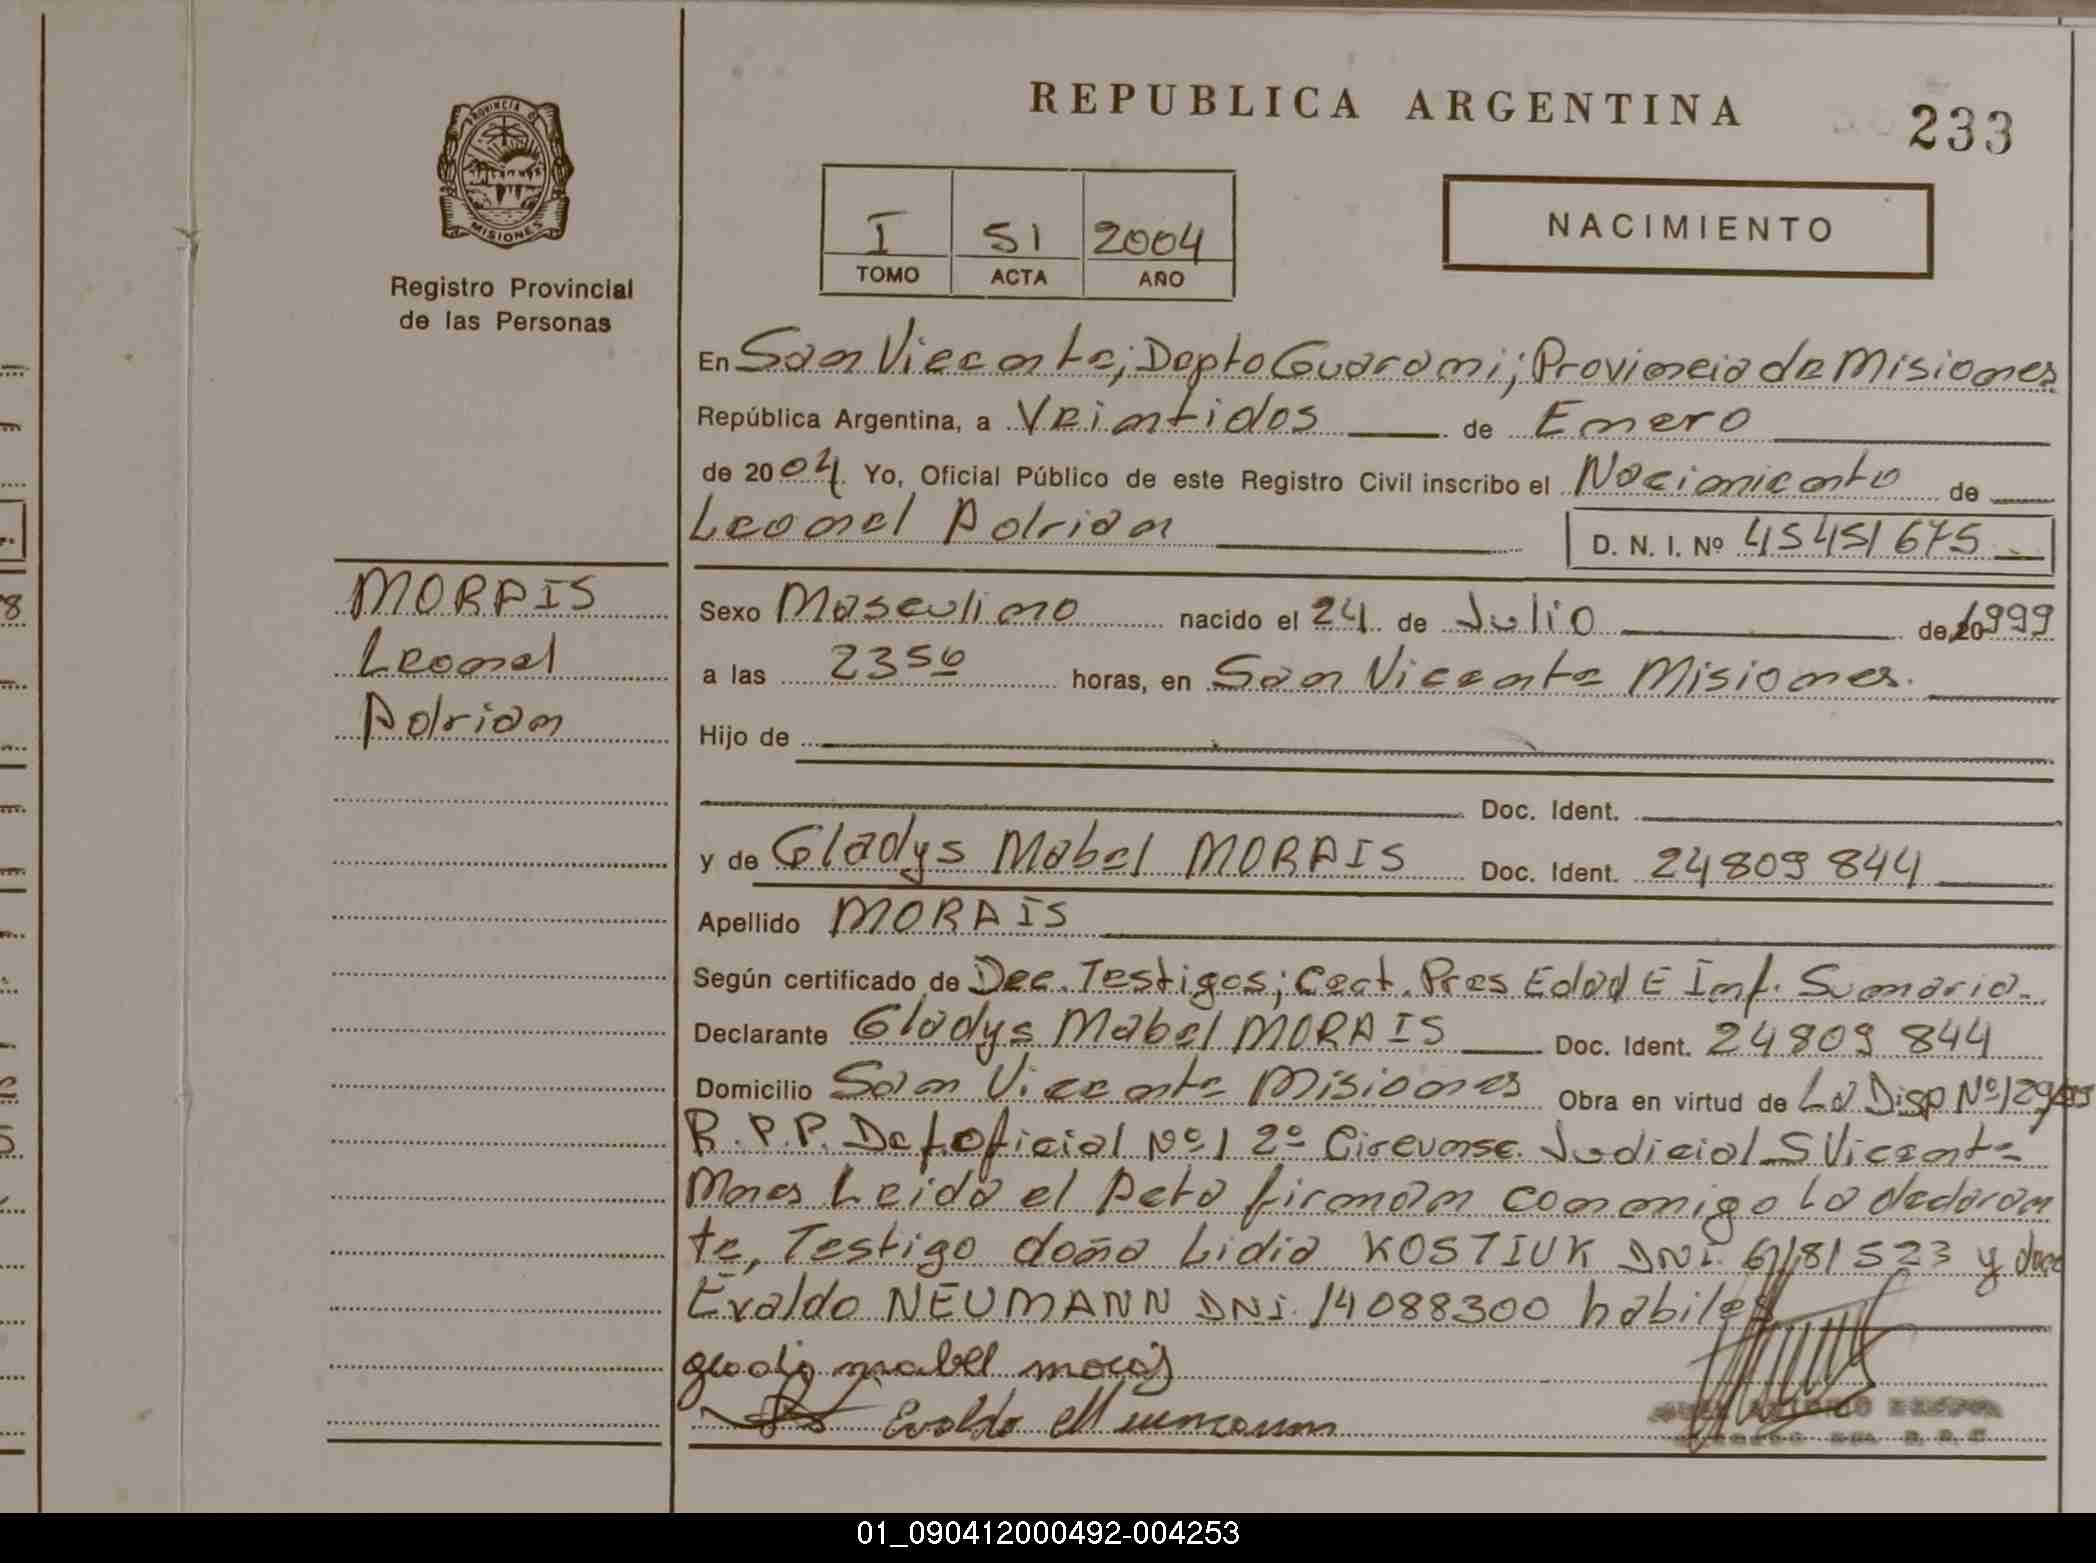 REPUBLICA ARGENTINA
233
PROVINCIA DE
MISIONES
Registro Provincial
de las Personas
I 51 2004
TOMO ACTA AÑO
NACIMIENTO
En San Vicente; Depto Guarani; Provincia de Misiones
República Argentina, a Veintidos de Enero
de 2004 Yo, Oficial Público de este Registro Civil inscribo el Nacimiento de
Leonel Adrian D. N. I. Nº 45451675
MORAIS
Leonel
Adrian
Sexo Masculino nacido el 24 de Julio de 1999
a las 23 50 horas, en San Vicente Misiones.
Hijo de
Doc. Ident.
y de Gladys Mabel MORAIS Doc. Ident. 24809 844
Apellido MORAIS
Según certificado de Dec. Testigos; Cert. Pres Edad E Inf. Sumaria
Declarante Gladys Mabel MORAIS Doc. Ident. 24809 844
Domicilio San Vicente Misiones Obra en virtud de La Disp Nº 129
R.P.P. Def. Oficial Nº 1 2º Circunsc. Judicial S Vicente
Mnes Leida el Acta firman conmigo la declaran
te, Testigo doña Lidia KOSTIUK DNI. 6181523 y don
Evaldo NEUMANN DNI. 14088300 habiles
mabel
Evaldo Neumann
01_090412000492-004253